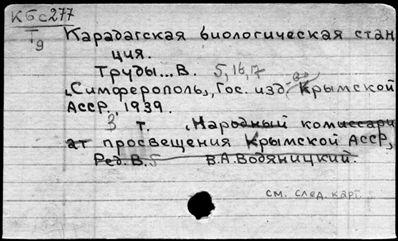 К6с277
Т9
Карадагская биологическая стан
ция.
Труды...В. 5,16,17
"Симферополь", Гос. изд-во Крымской
АССР, 1939.
3 т. "Народный комиссари
ат просвещения Крымской АССР,
Ред. В. В.А.Водяницкий.
см. след. карт.